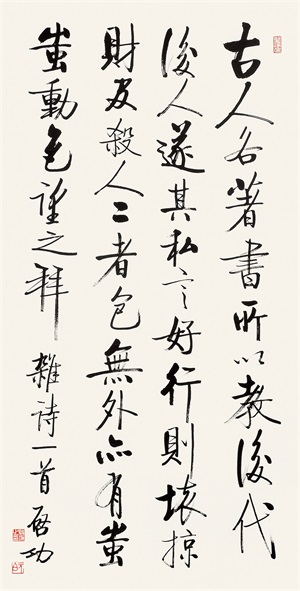 古人各著書所以教後代
後人遂其私言好行則壞掠
財及殺人二者包無外亦有蚩
蚩動色望之拜
雜詩一首 啟功